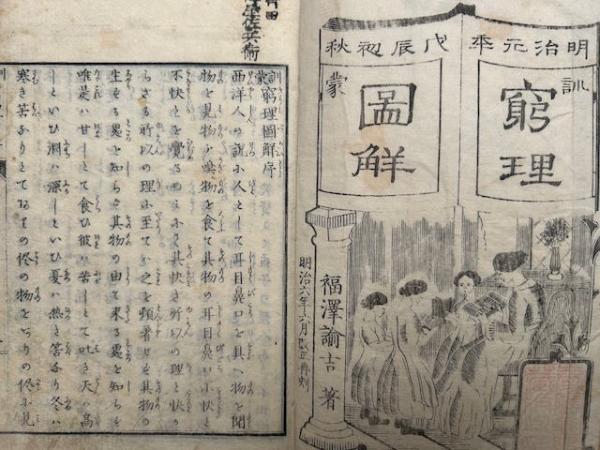 明治元年戊辰初秋
訓蒙
窮理
圖解
福澤諭吉著
明治六年六月改正再刻
佐兵衛
訓蒙窮理圖解序
西洋人の説に人として耳目鼻口を具へ物を聞
物を見物を嗅物を食て其物の耳目鼻口に快と
不快とを覺るのみにて其快き所以の理と快か
らざる所以の理に至ては之を顧ず其物の
生ずる處を知らず其物の由て来る處を知らず
唯是は甘しとて食ひ彼は苦しとて吐き天は高
しといひ淵は深しといひ夏は熱き筈なり冬は
寒き筈なりとて の儘の物をありの儘に見